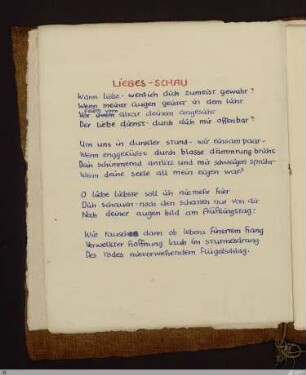 LIEBES-SCHAU
Wann liebe - werd ich dich zumeist gewahr?
Wenn meiner augen geister in dem licht
Vor ihrem altar deinem angesicht
Der liebe dienst durch dich mir offenbar?
Um uns in dunkler stund - wir einsam paar -
Wenn enggeküsst durch blasse dämmrung bricht
Dein schimmernd antlitz und mir schweigen spricht
Wenn deine seele all mein eigen war?
O liebe liebste soll ich nie mehr hier
Dich schauen - noch den schatten nur von dir
Noch deiner augen bild am frühlingstag:
Wie rauscht dann ob lebens finstrem hang
Verwelkter hoffnung laub im sturmesdrang
Des todes nieverwehendem flügelschlag.